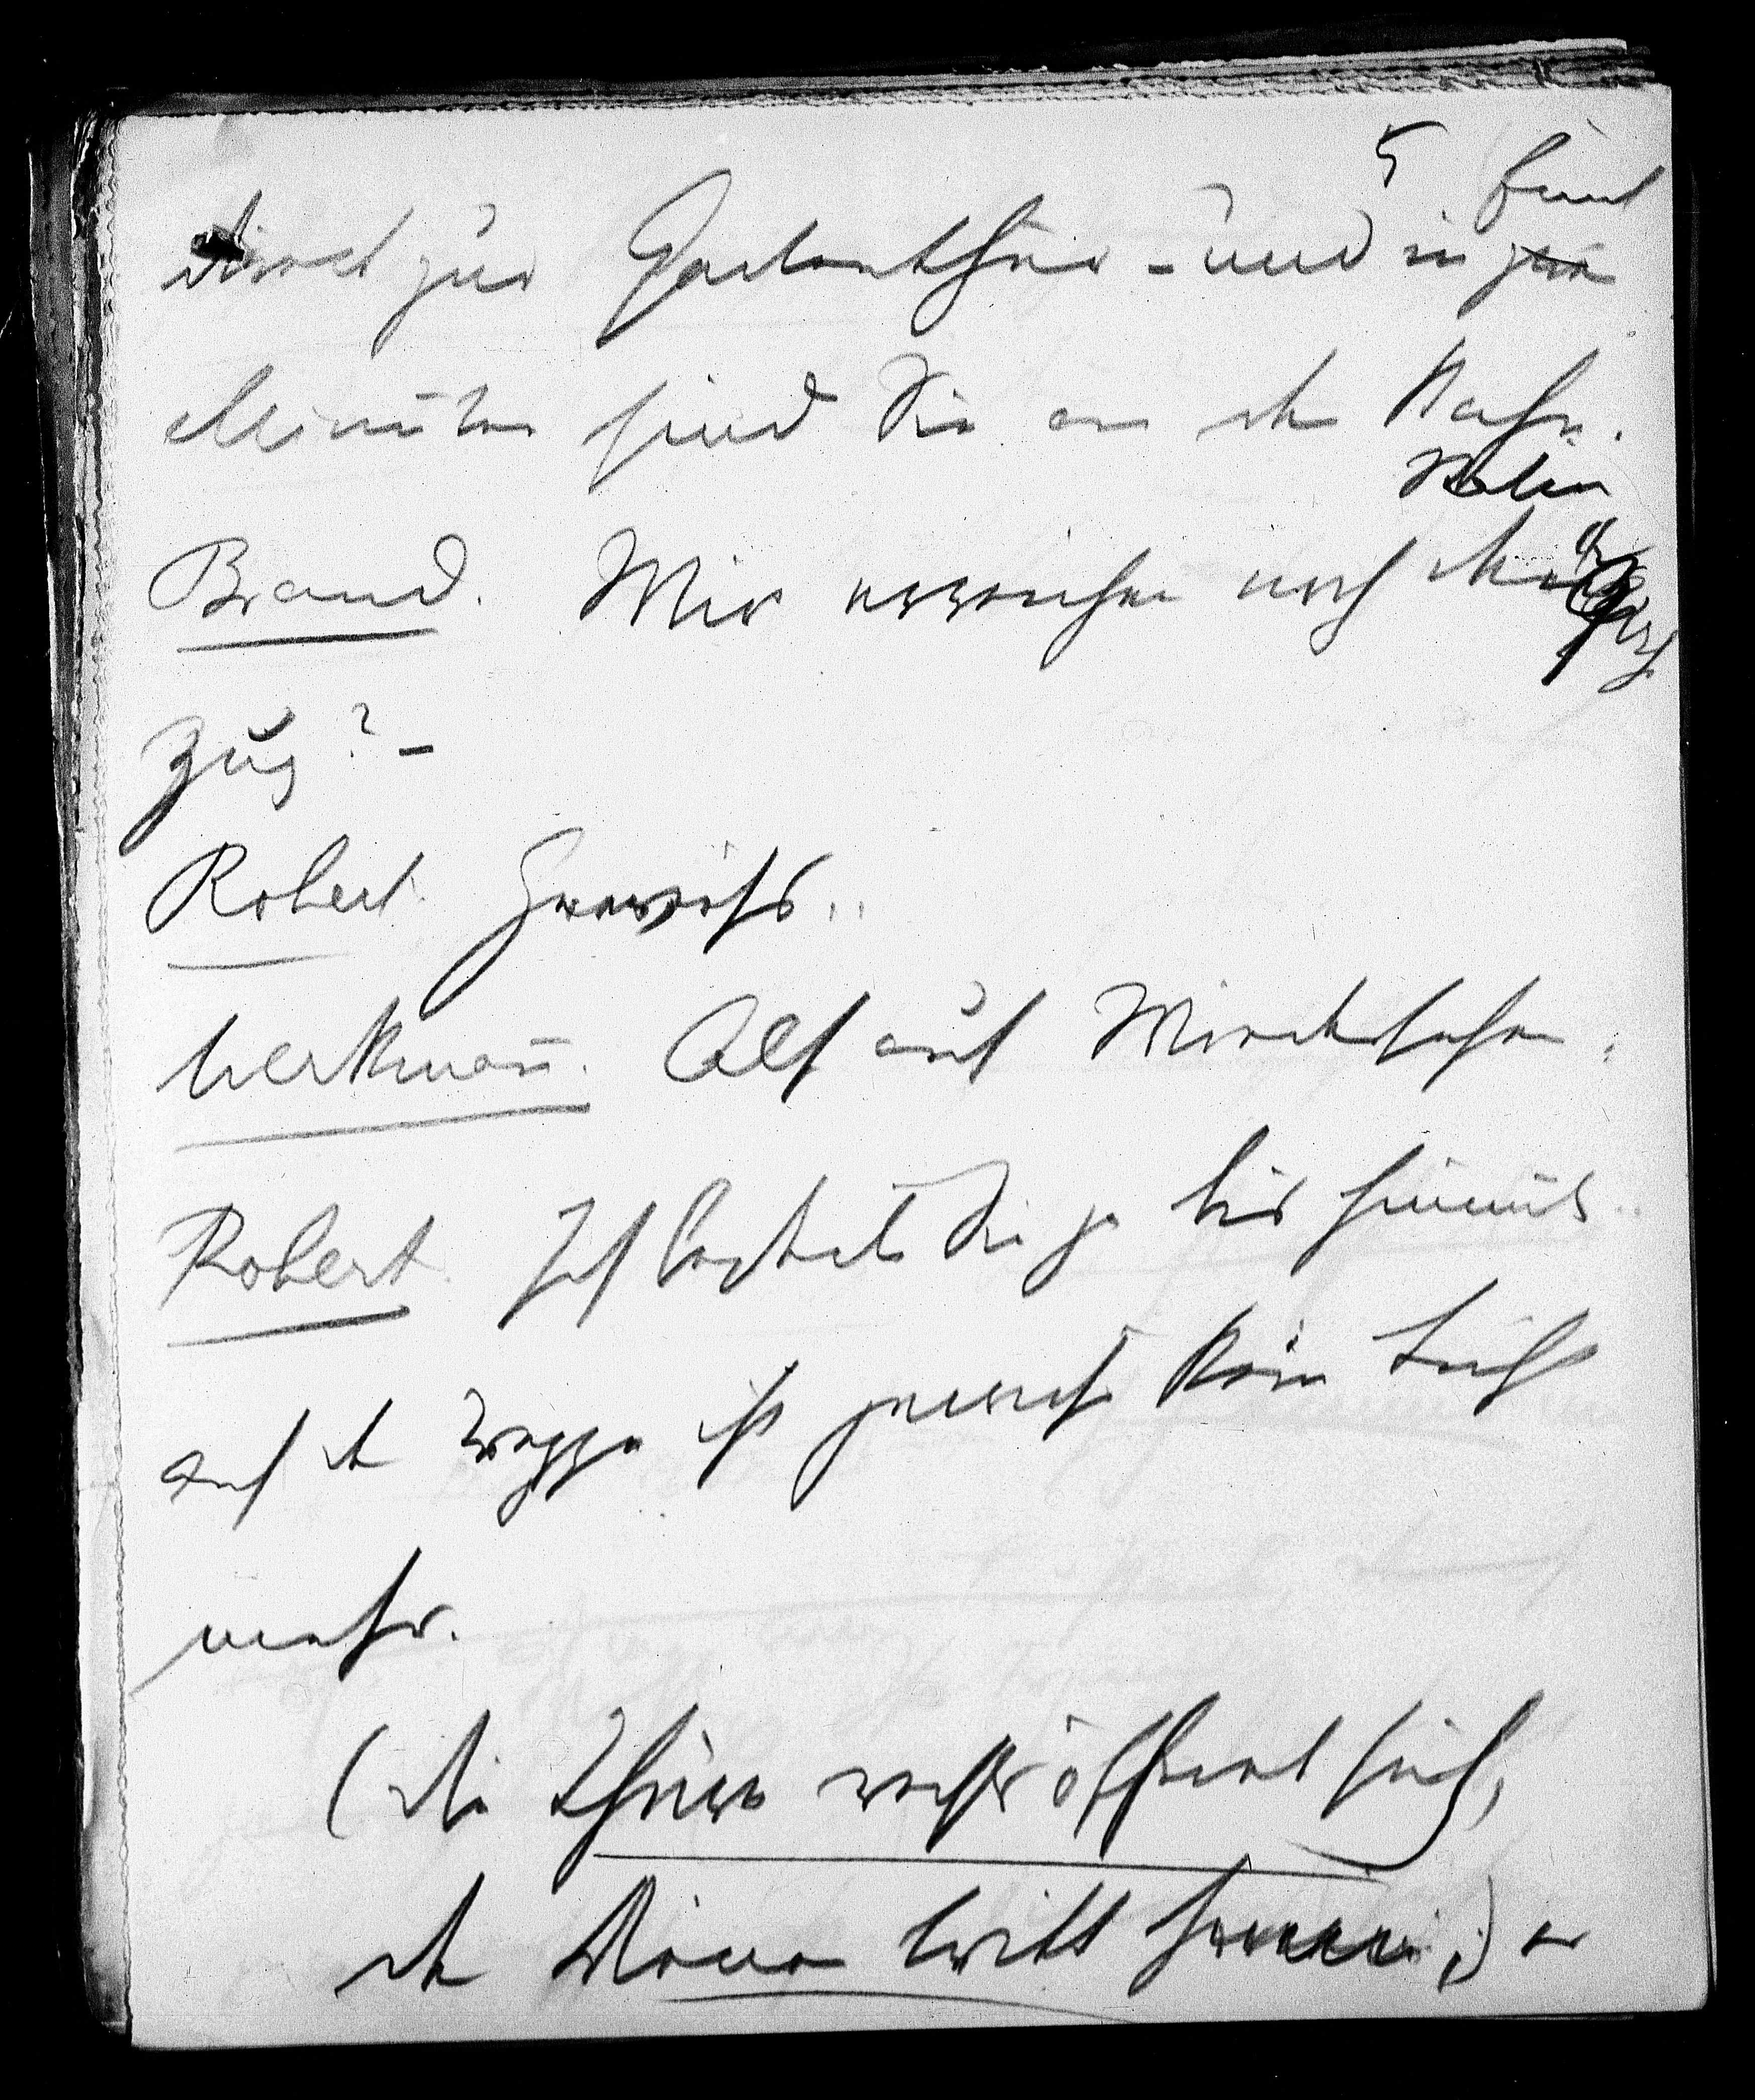 5 fünf
direct zur Gartenthür - und in zwei
Minuten sind Sie an der Bahn.
Brand. Wir erreichen noch den
Zug? -
Robert. Gewiss..
Werkmann. Also auf Wiedersehen.
Robert. Ich begleite Sie ja bis hinunter..
auf der Treppe ist gewiss kein Licht
mehr.
(die Thüre rechts öffnet sich,
der Diener tritt herein,) er